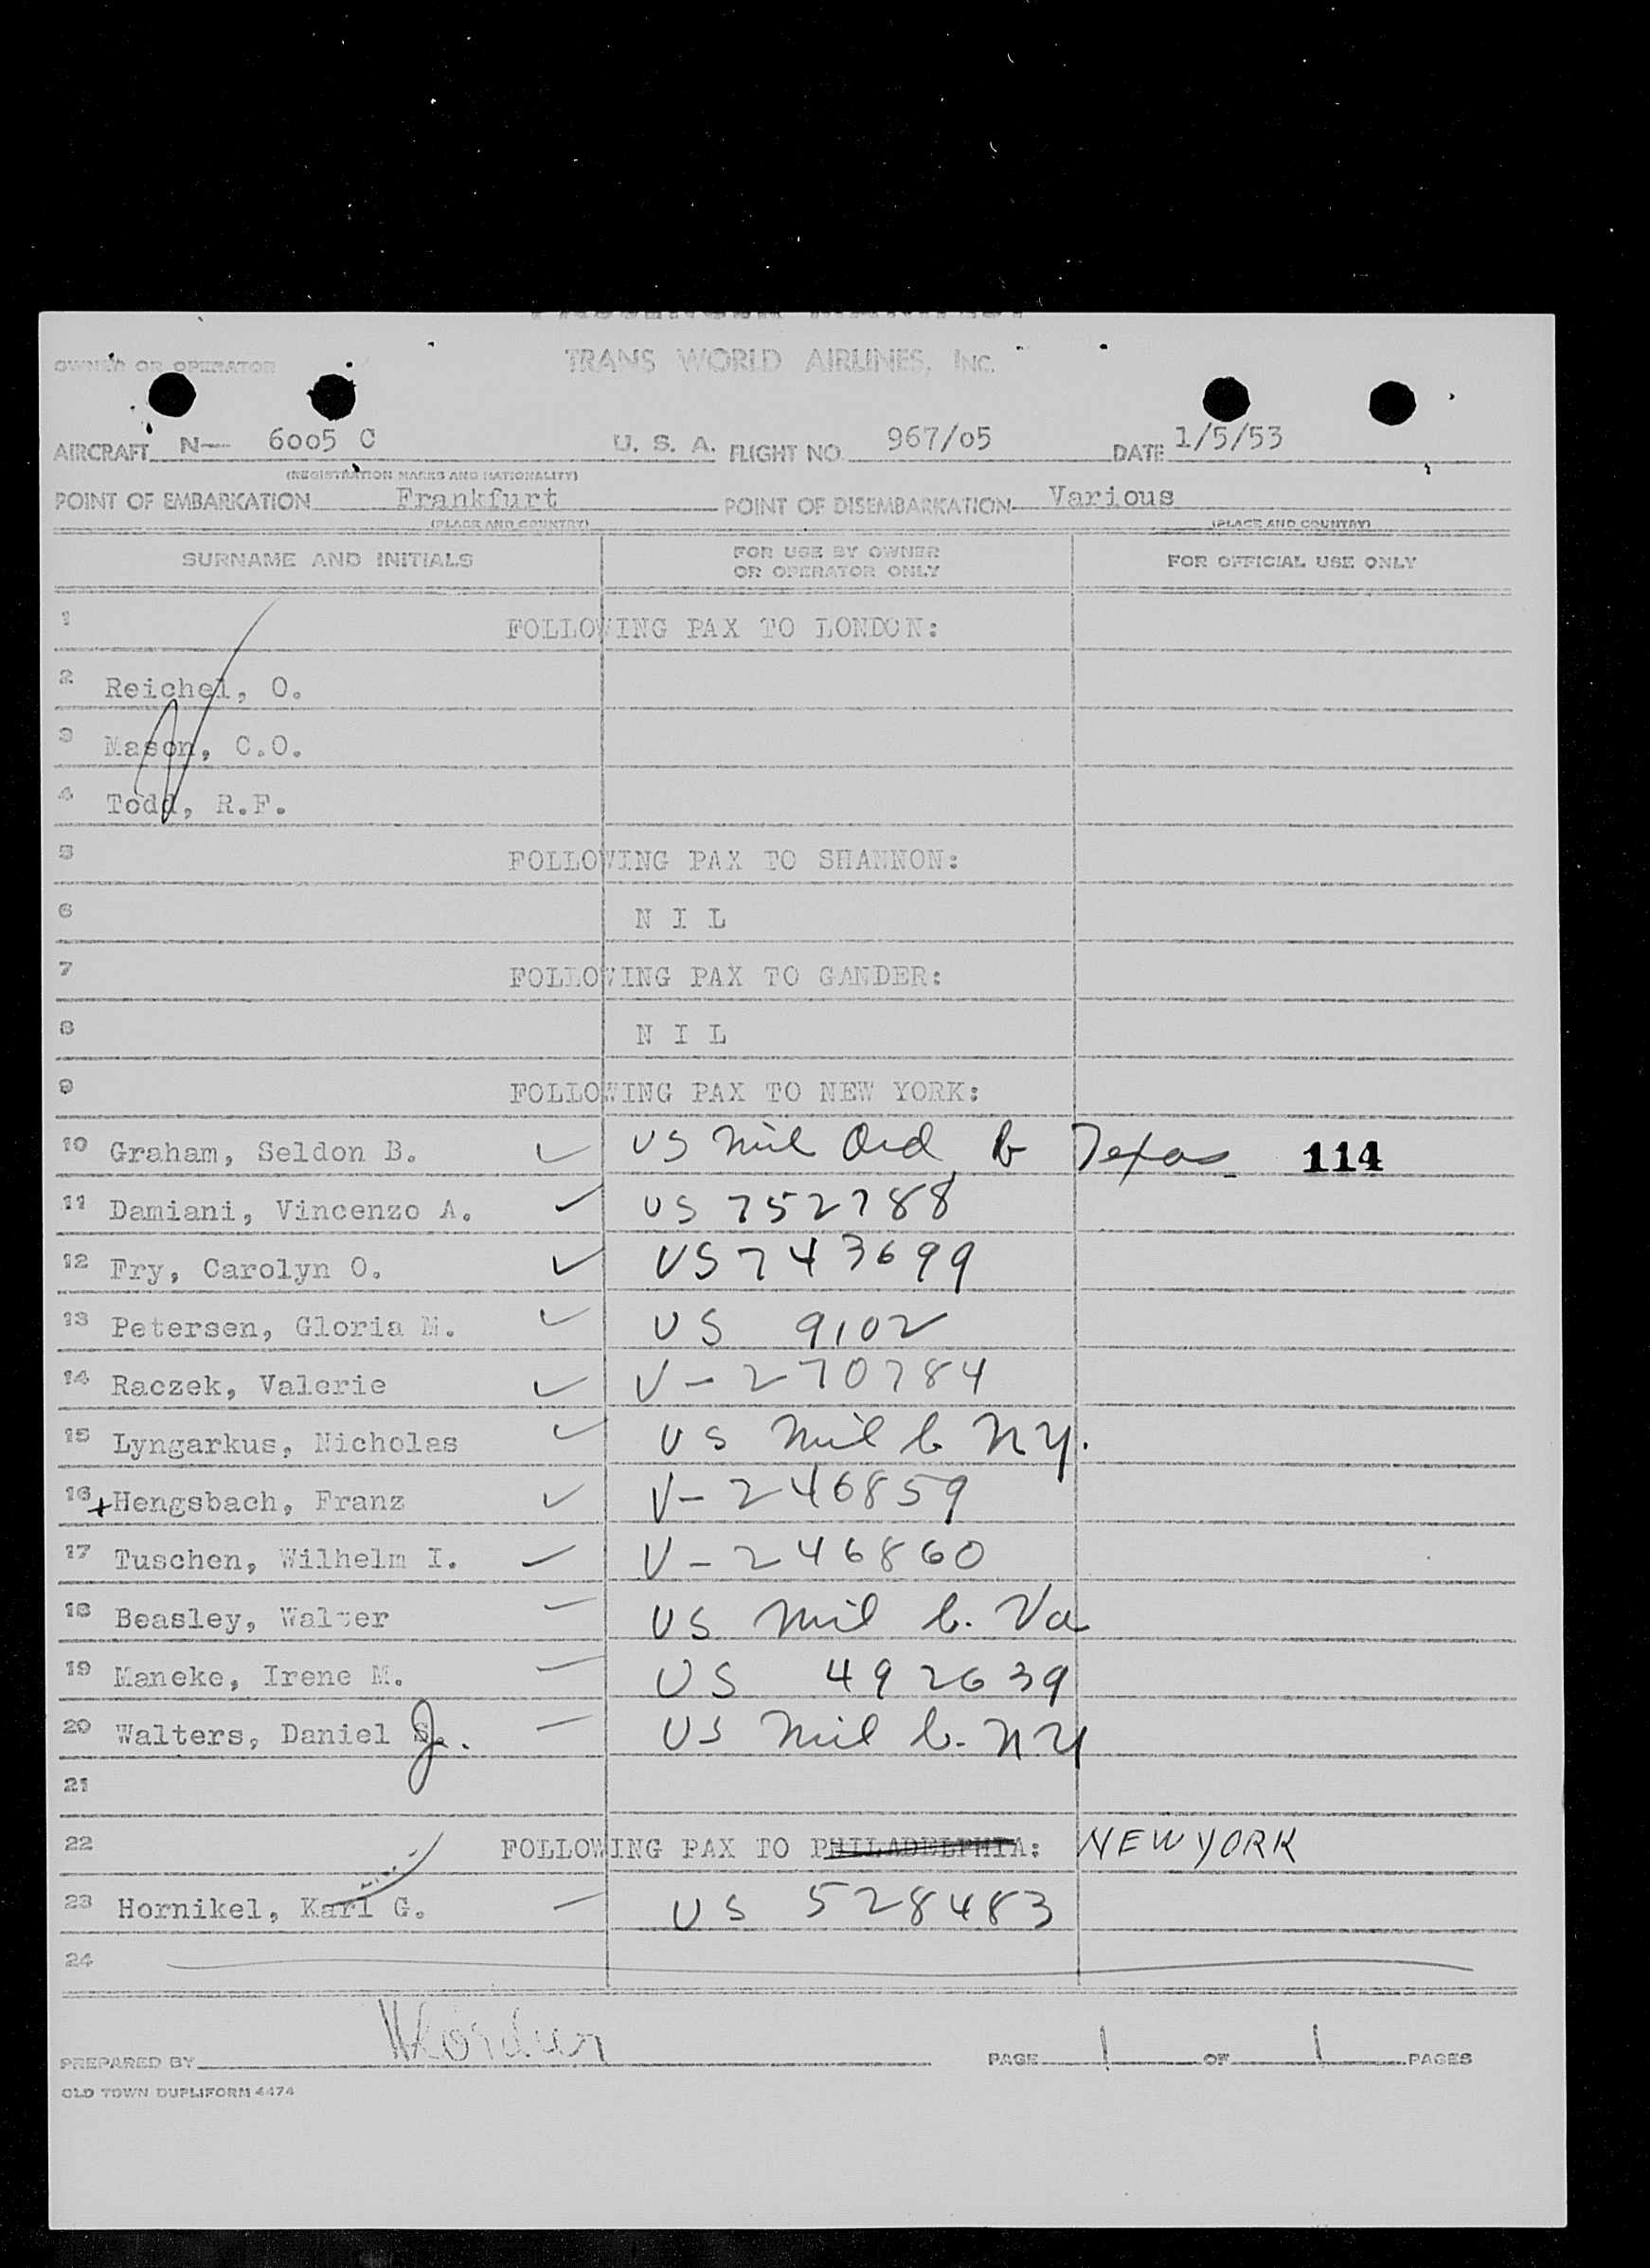 OWNER OR OPERATOR TRANS WORLD AIRLINES, INC.
AIRCRAFT N— 6005 C U. S. A. FLIGHT NO. 967/05 DATE 1/5/53
(REGISTRATION MARKS AND NATIONALITY)
POINT OF EMBARKATION Frankfurt POINT OF DISEMBARKATION Various
(PLACE AND COUNTRY) (PLACE AND COUNTRY)
SURNAME AND INITIALS FOR USE BY OWNER OR OPERATOR ONLY FOR OFFICIAL USE ONLY
1 FOLLOWING PAX TO LONDON:
2 Reichel, O.
3 Mason, C.O.
4 Todd, R.F.
5 FOLLOWING PAX TO SHANNON:
6 N I L
7 FOLLOWING PAX TO GANDER:
8 N I L
9 FOLLOWING PAX TO NEW YORK:
10 Graham, Seldon B. ✓ US Mil Ord b Texas 114
11 Damiani, Vincenzo A. ✓ US 752788
12 Fry, Carolyn O. ✓ US 743699
13 Petersen, Gloria M. ✓ US 9102
14 Raczek, Valerie ✓ V-270784
15 Lyngarkus, Nicholas ✓ US Mil b NY.
16 + Hengsbach, Franz ✓ V-246859
17 Tuschen, Wilhelm I. ✓ V-246860
18 Beasley, Walter – US Mil b. Va
19 Maneke, Irene M. – US 492639
20 Walters, Daniel J. – US Mil b. NY
21
22 FOLLOWING PAX TO PHILADELPHIA: NEW YORK
23 Hornikel, Karl G. – US 528483
24
PREPARED BY PAGE 1 OF 1 PAGES
OLD TOWN DUPLIFORM 4474